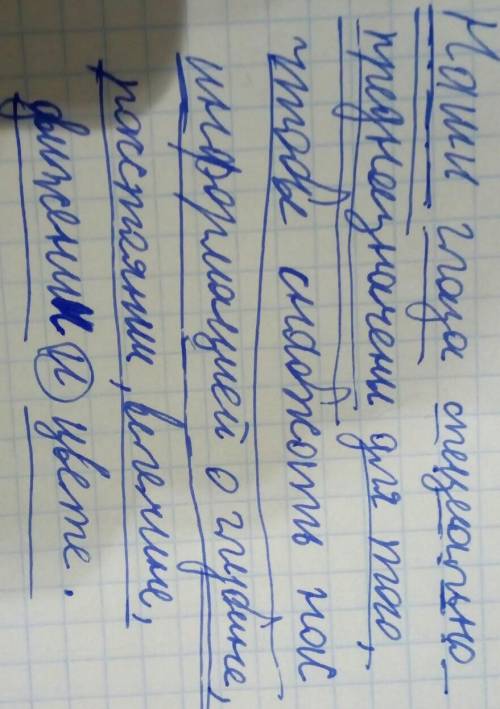 Наши глаза специально
предназначены для того,
чтобы снабжать нас
информацией о глубине,
расстоянии, величине,
движении и цвете.